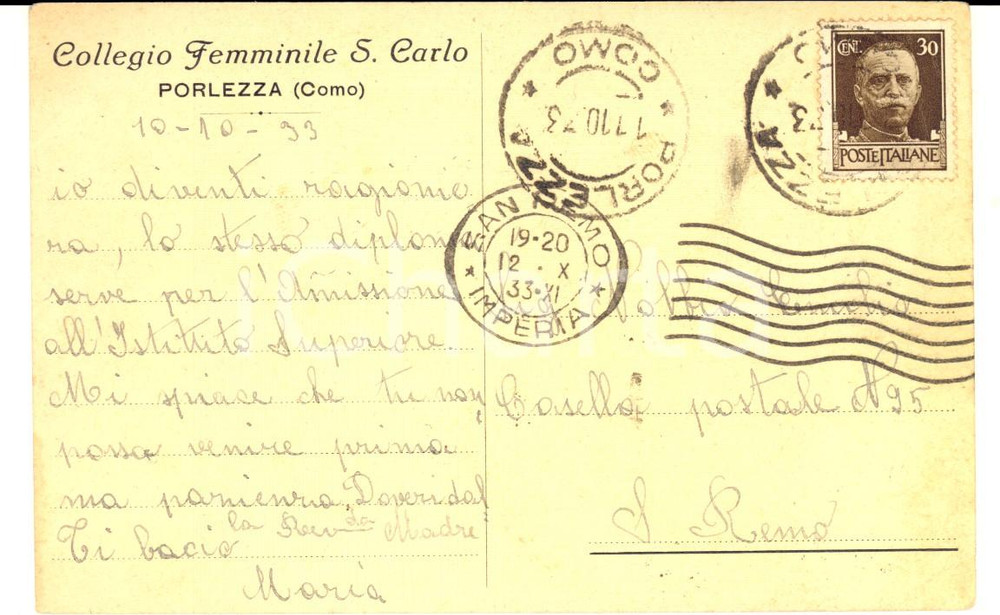 Collegio Femminile S. Carlo
PORLEZZA (Como)
10-10-33
io diventi ragionie
ra, lo stesso diploma
serve per l'Amissione
all'Istittito Superiore.
Mi spiace che tu non
possa venire prima
ma panienza. Doveri dal
la Revda Madre
Ti bacio
Maria
COMO
PORLEZZA
11.10.33
CENT. 30
POSTE ITALIANE
SAN REMO
19-20
12 . X
33-XI
IMPERIA
Nobbio
Casella postale N 95
S. Remo